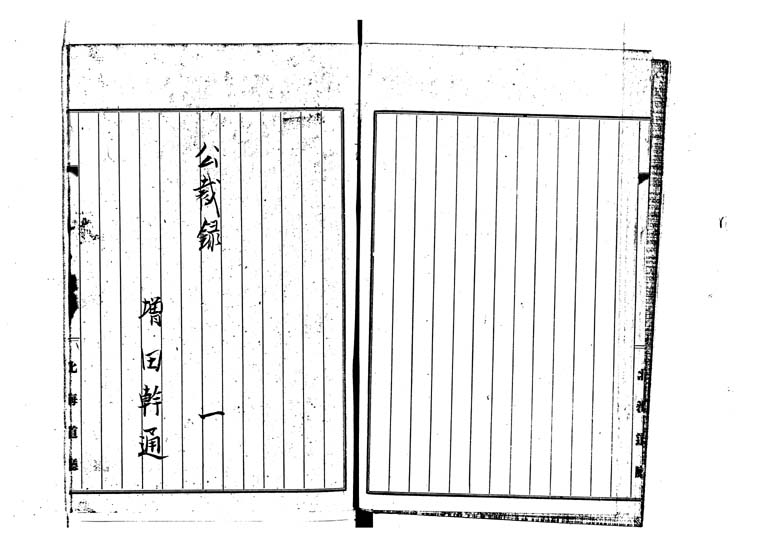 公裁録 一
増田幹通
北海道廳
北海道廳